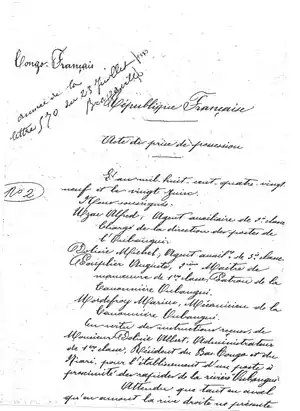 Congo Français
annexé de la
lettre 570 du 23 Juillet
Brazzaville
République Française
Acte de prise de possession
N° 2
L'an mil huit cent quatre vingt
neuf et le vingt Juin.
Nous soussignés
Uzac Alfred, Agent auxiliaire de 3e classe
Chargé de la direction des postes de
l'Oubangui.
Dolisie Michel, Agent auxre de 3e classe,
Pouplier Auguste, 2e Maître de
manœuvre de 1re classe, Patron de la
Canonnière Oubangui.
Marius, Mécanicien de la
Canonnière Oubangui.
En vertu des instructions reçues de
Monsieur Dolisie Albert, Administrateur
de 1re classe, Résident du Bas Congo et du
Niari, pour l'établissement d'un poste à
proximité des rapides de la rivière Oubangui
Attendu que tant en aval
qu'en amont la rive droite ne présente